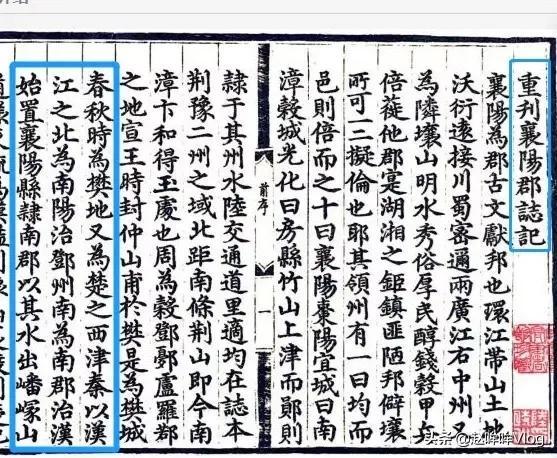 重刊襄陽郡誌記
襄陽為郡古文獻邦也環江帶山土地
沃衍遠接川蜀密邇兩廣江右中州又
為隣壤山明水秀俗厚民醇錢穀甲兵
倍蓰他郡寔湖湘之鉅鎮匪陋邦僻壤
所可三擬倫也耶其領州有一曰均而
邑則倍而之十曰襄陽棗陽宜城曰南
漳穀城光化曰房縣竹山上津而鄖則
前序 一
隸于其州水陸交通道里適均在誌本
荆豫二州之域北距南條荆山即今南
漳卞和得玉處也周為穀鄧鄾盧羅鄀
之地宣王時封仲山甫於樊是為樊城
春秋時為樊地又為楚之西津秦以漢
江之北為南陽治鄧州南為南郡治漢
始置襄陽縣隸南郡以其水出嶓冢山
头条 Vlog